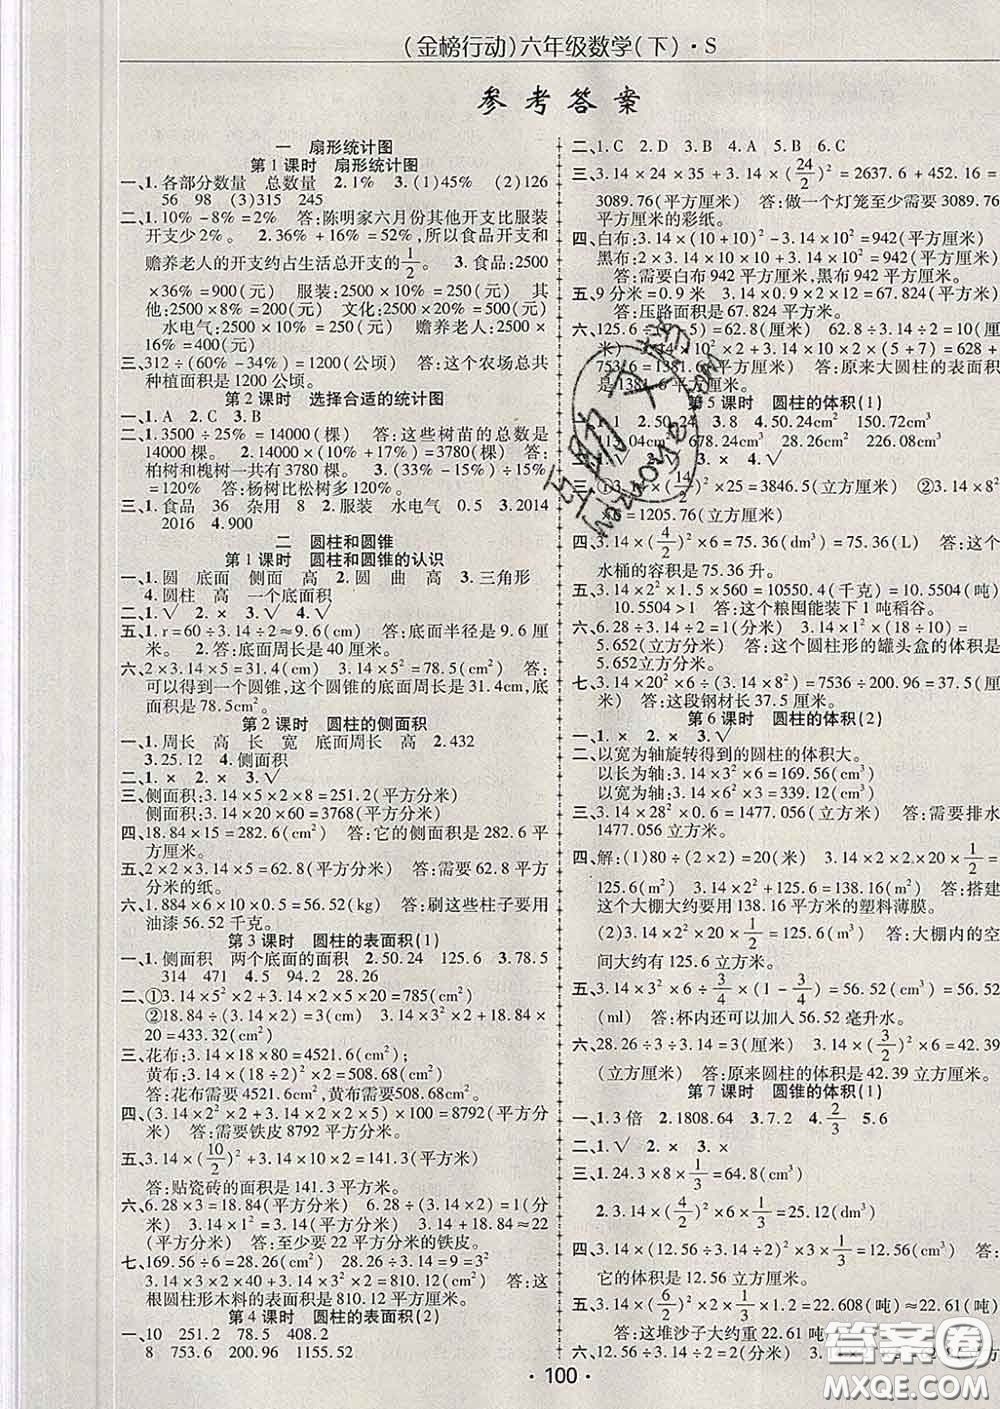 (金榜行动)六年级数学(下)·S
参考答案
一 扇形统计图
第1课时 扇形统计图
一、1.各部分数量 总数量 2.1% 3.(1)45% (2)126
56 98 (3)315 245
二、1.10%-8%=2% 答:陈明家六月份其他开支比服装
开支少2%。 2.36%+16%=52%,所以食品开支和
赡养老人的开支约占生活总开支的1/2。 3.食品:2500
×36%=900(元) 服装:2500×10%=250(元) 其
他:2500×8%=200(元) 文化:2500×20%=500(元)
水电气:2500×10%=250(元) 赡养老人:2500×
16%=400(元)
三、312÷(60%-34%)=1200(公顷) 答:这个农场总共
种植面积是1200公顷。
第2课时 选择合适的统计图
一、1.A 2.C 3.B
二、1.3500÷25%=14000(棵) 答:这些树苗的总数是
14000棵。 2.14000×(10%+17%)=3780(棵) 答:
柏树和槐树一共有3780棵。 3.(33%-15%)÷15%
=120% 答:杨树比松树多120%。
三、1.食品 36 杂用 8 2.服装 水电气 0.5 3.2014
2016 4.900
二 圆柱和圆锥
第1课时 圆柱和圆锥的认识
一、1.圆 底面 侧面 高 2.圆 曲 高 3.三角形
4.圆柱 高 一个底面积
二、1.√ 2.× 3.√ 4.√
五、1.r=60÷3.14÷2≈9.6(cm) 答:底面半径是9.6厘
米。 2.答:底面周长是40厘米。
六、2×3.14×5=31.4(cm) 3.14×5²=78.5(cm²) 答:
可以得到一个圆锥,这个圆锥的底面周长是31.4cm,底
面积是78.5cm²。
第2课时 圆柱的侧面积
一、1.周长 高 长 宽 底面周长 高 2.432
3.25.12 4.侧面积
二、1.× 2.× 3.√
三、侧面积:3.14×5×2×8=251.2(平方分米)
侧面积:3.14×20×60=3768(平方分米)
四、18.84×15=282.6(cm²) 答:它的侧面积是282.6平
方厘米。
五、2×2×3.14×5=62.8(平方分米) 答:需要62.8平方
分米的纸。
六、1.884×0.5×10×6=56.52(kg) 答:刷这些柱子要用
油漆56.52千克。
第3课时 圆柱的表面积(1)
一、1.侧面积 两个底面的面积 2.50.24 125.6 3.78.5
314 471 4.5 94.2 28.26
二、①3.14×5²×2+3.14×5×2×20=785(cm²)
②18.84÷(3.14×2)=3(cm) 3.14×3²×2+18.84×
20=433.32(cm²)
三、花布:3.14×18×80=4521.6(cm²);
黄布:3.14×(18÷2)²×2=508.68(cm²)
答:花布需要4521.6cm²,黄布需要508.68cm²。
四、(3.14×2²×2+3.14×2×2×5)×100=8792(平方分
米) 答:需要铁皮8792平方分米。
五、3.14×(10/2)²+3.14×10×2=141.3(平方米)
答:贴瓷砖的面积是141.3平方米。
六、6.28×3=18.84(平方分米) 6.28÷(3.14×2)=1(分
米) 3.14×1²=3.14(平方分米) 3.14+18.84≈22
(平方分米) 答:至少要22平方分米的铁皮。
七、169.56÷6=28.26(cm²) 28.26÷3.14=9=3²
3.14×3×2×40+3.14×3²×2=810.12(cm²) 答:这
根圆柱形木料的表面积是810.12平方厘米。
第4课时 圆柱的表面积(2)
一、10 251.2 78.5 408.2
8 753.6 200.96 1155.52
二、1.C 2.D 3.A 4.B 5.A 6.C
三、3.14×24×35+3.14×(24/2)²=2637.6+452.16=
3089.76(平方厘米) 答:做一个灯笼至少需要3089.76
平方厘米的彩纸。
四、白布:3.14×(10+10)²-3.14×10²=942(平方厘米)
黑布:2×3.14×10×10+3.14×10²=942(平方厘米)
答:需要白布942平方厘米,黑布942平方厘米。
五、9分米=0.9米 3.14×0.9×2×12=67.824(平方米)
答:压路面积是67.824平方米。
六、125.6÷5)=62.8(厘米) 62.8÷3.14÷2=10(厘
米) 3.14×10²×2+3.14×10×2×(5+7)=628+
753.6=1381.6(平方厘米) 答:原来大圆柱的表面积
是1381.6平方厘米。
第5课时 圆柱的体积(1)
1 2.50.24 3.8 4.50.24cm³ 150.72cm³
113.04cm² 678.24cm³ 28.26cm² 226.08cm³
3.× 4.√
三、①3.14×(14/2)²×25=3846.5(立方厘米) ②3.14×8²
×6=1205.76(立方厘米)
四、3.14×(4/2)²×6=75.36(dm³)=75.36(L) 答:这个
水桶的容积是75.36升。
五、3.14×2²×1.5×560=10550.4(千克)=10.5504(吨)
10.5504>1 答:这个粮囤能装下1吨稻谷。
六、6.28÷3.14÷2=1(分米) 3.14×1²×(18÷10)=
5.652(立方分米) 答:这个圆柱形的罐头盒的体积是
5.652立方分米。
七、3.14×20²×6÷(3.14×8²)=7536÷200.96=37.5(厘
米) 答:这段钢材长37.5厘米。
第6课时 圆柱的体积(2)
一、1.× 2.× 3.√
二、以宽为轴旋转得到的圆柱的体积大。
以长为轴:3.14×3²×6=169.56(cm³)
以宽为轴:3.14×6²×3=339.12(cm³)
三、3.14×28²×0.6=1477.056(立方厘米) 答:需要排水
1477.056立方厘米。
四、解:(1)80÷(2×2)=20(米) 3.14×2×2×20×1/2=
125.6(m²) 3.14×2²+125.6=138.16(m²) 答:搭建
这个大棚大约要用138.16平方米的塑料薄膜。
(2)3.14×2²×20×1/2=125.6(m³) 答:大棚内的空
间大约有125.6立方米。
五、3.14×3²×6÷3/4×(1-3/4)=56.52(cm³)=56.52
(ml) 答:杯内还可以装56.52毫升水。
六、28.26÷3÷3.14=3(厘米) 3.14×(3/2)²×6=42.39
(立方厘米) 答:原来圆柱的体积是42.39立方厘米。
第7课时 圆锥的体积(1)
一、1.3倍 2.1808.64 3.7.2 4.2/3 5.6
二、1.√ 2.× 3.×
三、1.24.3×8×1/3=64.8(cm³)
2.3.14×(4/2)²×6×1/3=25.12(dm³)
四、3.14×(12.56÷3.14÷2)²×3×1/3=12.56(立方厘米)
答:它的体积是12.56立方厘米。
五、3.14×(6/2)²×2×1/3×1.2=22.608(吨)≈22.61(吨)
答:这堆沙子大约重22.61吨
六、12.56÷3.14÷2=2(分米)
·100·
答案圈
MXQE.COM